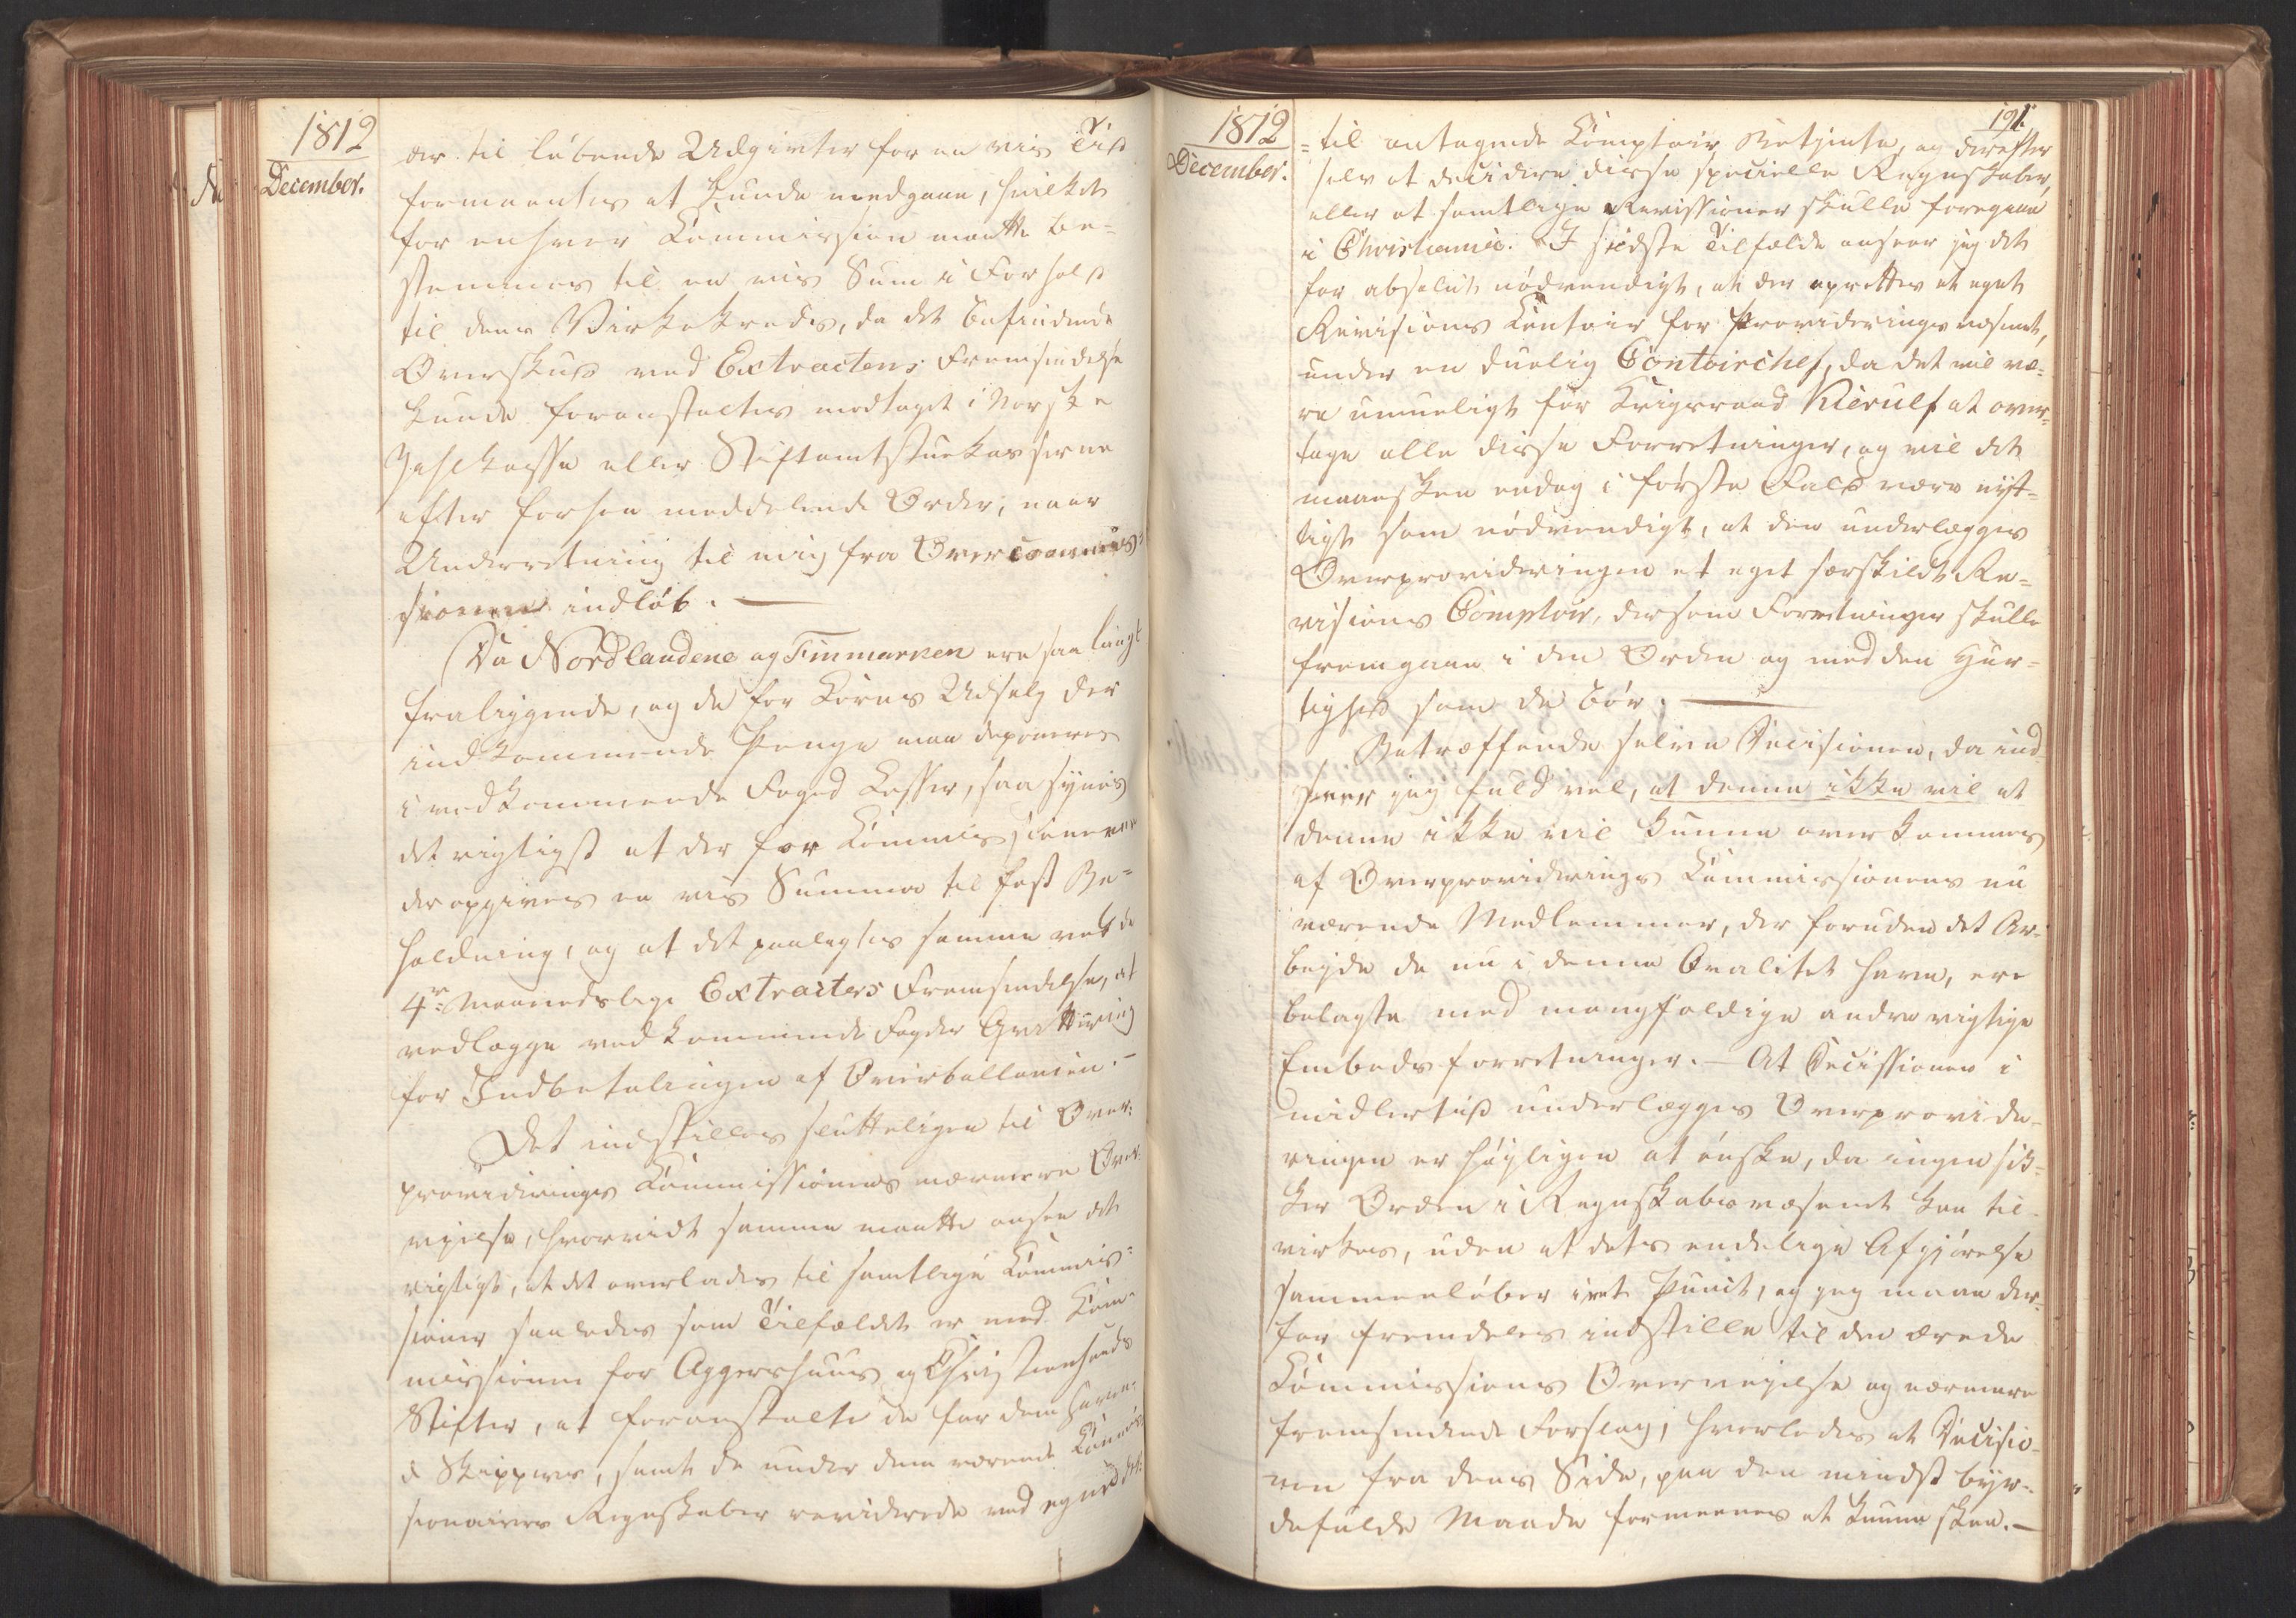 1812
December.
der til løbende Udgivter for en vis Tid
formeentes at kunde medgaae, hvilket
for enhver Commission maatte be-
stemmes til en vis Sum i Forhold
til dens Virkekreds, da det befindende
Overskud ved Extractens Fremsendelse
kunde foranstaltes modtaget i Norske
Zahlkasse eller Stiftamtstuekasserne
efter forhen meddelende Ordre, naar
Underretning til mig fra Overcommis-
sionen indløb. —
Da Nordlandene og Finmarken ere saa langt
fraliggende, og de for Korns Udsalg der
indkommende Penge maa deponeres
i vedkommende Foged Casser, saa synes
det rigtigst at der for Commissionerne
der opgives en vis Summa til fast Be-
holdning, og at det paalegtes samme ved de
4re maanedslige Extracters Fremsendelse, at
vedlægge vedkommende Fogder Qvittering
for Indbetalingen af Overballancen. —
Det indstilles sluttelig en til Over-
provideringss Commissionens nærmere Over-
vejelse, hvorvidt samme maatte ansee det
rigtigt, at det overlades til samtlige Commis-
sioner saaledes som Tilfældet er med Com-
missionen for Aggershuus og Christiansands
Stifter, at foranstalte de for dem
Skippere, samt de under dem værende Commis-
sionairers Regnskaber reviderede ved egne dertil
1812
December.
191.
= til antagende Comptoir Betjente, og derefter
selv at decidere disse specielle Regnskaber,
eller at samtlige Revissioner skulle foregaae
i Christiania. I sidste Tilfælde anseer jeg det
for absolut nødvendigt, at der oprettes et eget
Revisions Contoir for Provideringsvæsenet,
under en duelig Contoirchef, da det vil væ-
re umueligt for Krigsraad Kierulf at over-
tage alle disse Forretninger, og vil det
maaskee endog i første Fald være nyt-
tigt som nødvendigt, at der underlægges
Overprovideringen et eget særskildt Re-
visions Comptoir, dersom Forretninger skulle
fremgaae i den Orden og med den Hur-
tighed som de bør. —
Betræffende selve Decisionen, da ind-
seer jeg fuld vel, at denne ikke vil at
denne ikke vil kunne overkommes
af Overproviderings Commissionens nu
værende Medlemmer, der foruden det Ar-
bejde de nu i denne Qvalitet have, ere
belagte med mangfoldige andre vigtige
Embedsforretninger. — At Decissionen i
midlertid underlægges Overprovide-
ringen er høyligen at ønske, da ingen sik-
ker Orden i Regnskabsvæsenet kan til-
virkes, uden at dets endelige Afgjørelse
sammenløber i et Punct, og jeg maae der-
for fremdeles indstille til den ærede
Commissions Overvejelse og nærmere
fremsendende Forslag, hvorledes at Decisio-
nen fra dens Side, paa den mindst byr-
defulde Maade formeenes at kunne skee. —